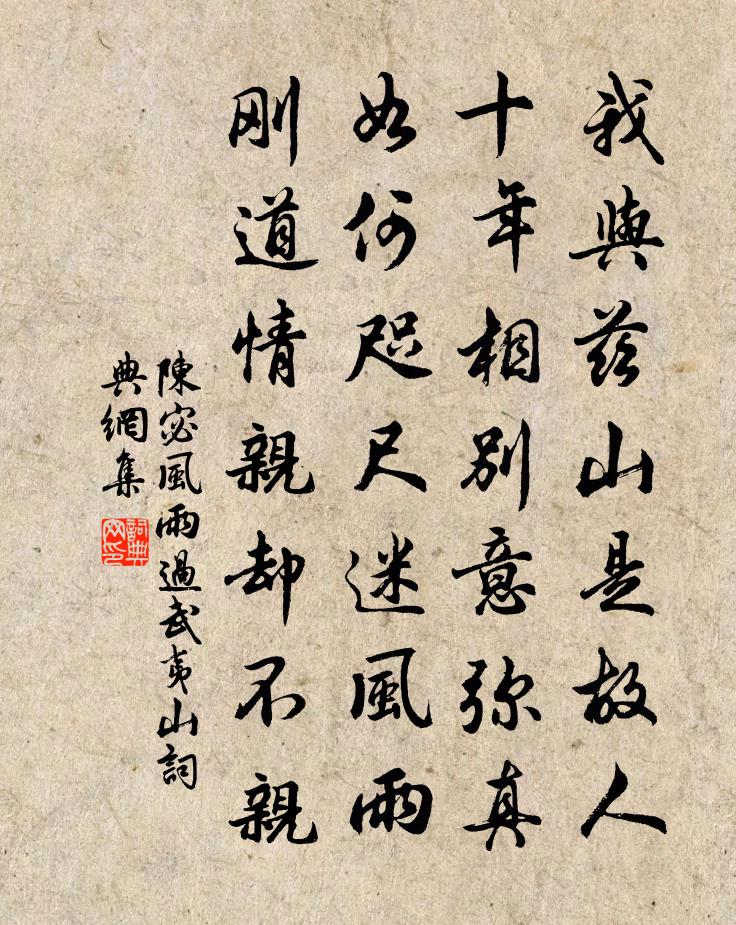 我與茲山是故人
十年相別意弥真
如何咫尺迷風雨
刚道情親却不親
陳宓風雨過武夷山詞
典網集
詞典
网印